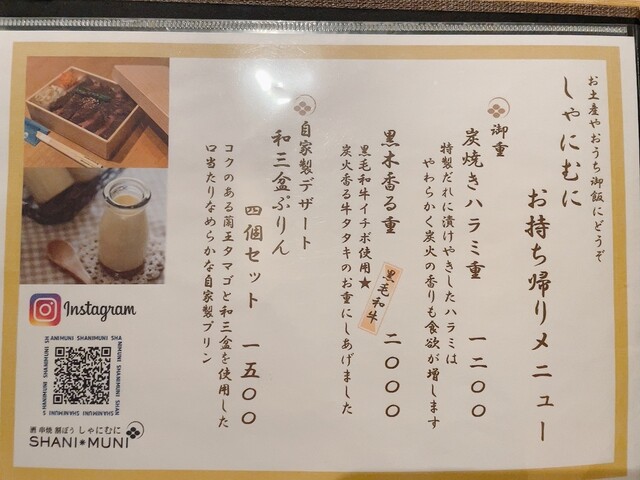 お土産やおうち御飯にどうぞ
しゃにむに
お持ち帰りメニュー
御重
炭焼きハラミ重 一二〇〇
特製だれに漬けやきしたハラミは
やわらかく炭火の香りも食欲が増します
黒木香る重 黒毛和牛 二〇〇〇
黒毛和牛イチボ使用★
炭火香る牛タタキのお重にしあげました
自家製デザート
和三盆ぷりん
四個セット 一五〇〇
コクのある蘭王タマゴと和三盆を使用した
口当たりなめらかな自家製プリン
Instagram
SHANIMUNI SHANIMUNI
酒 串焼 割ぽう しゃにむに
SHANI✱MUNI